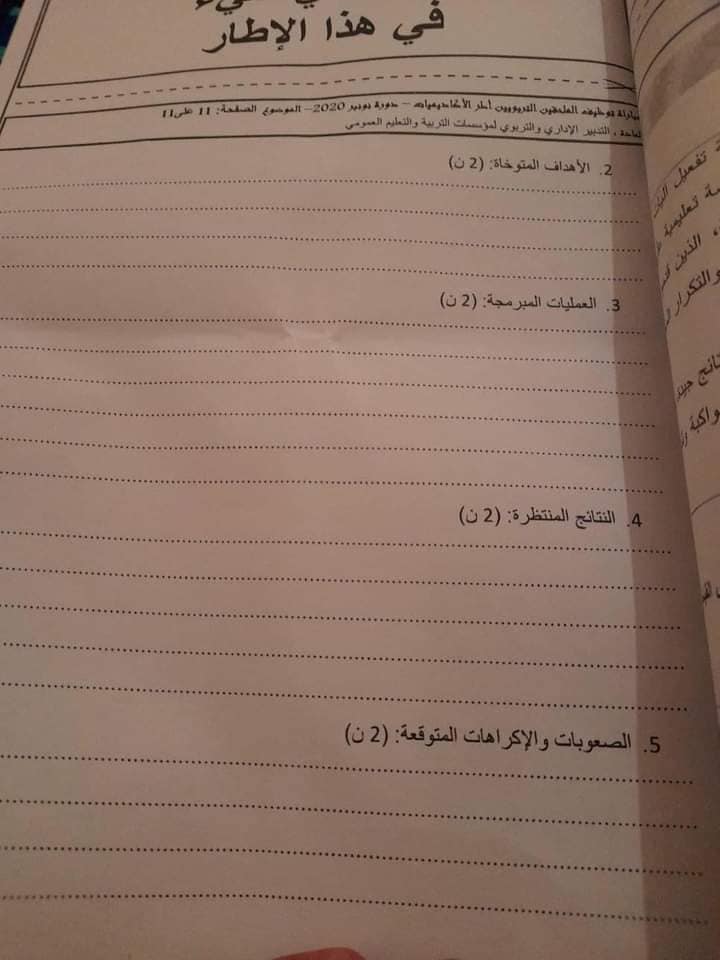 في هذا الإطار
مباراة توظيف الملحقين التربويين أطر الأكاديميات – دورة نونبر 2020– الموضوع الصفحة: 11 على 11
المادة : التدبير الإداري والتربوي لمؤسسات التربية والتعليم العمومي
2. الأهداف المتوخاة: (2 ن)
3. العمليات المبرمجة: (2 ن)
4. النتائج المنتظرة: (2 ن)
5. الصعوبات والإكراهات المتوقعة: (2 ن)
تفعيل
تعليمية
، الذين
والتكرار